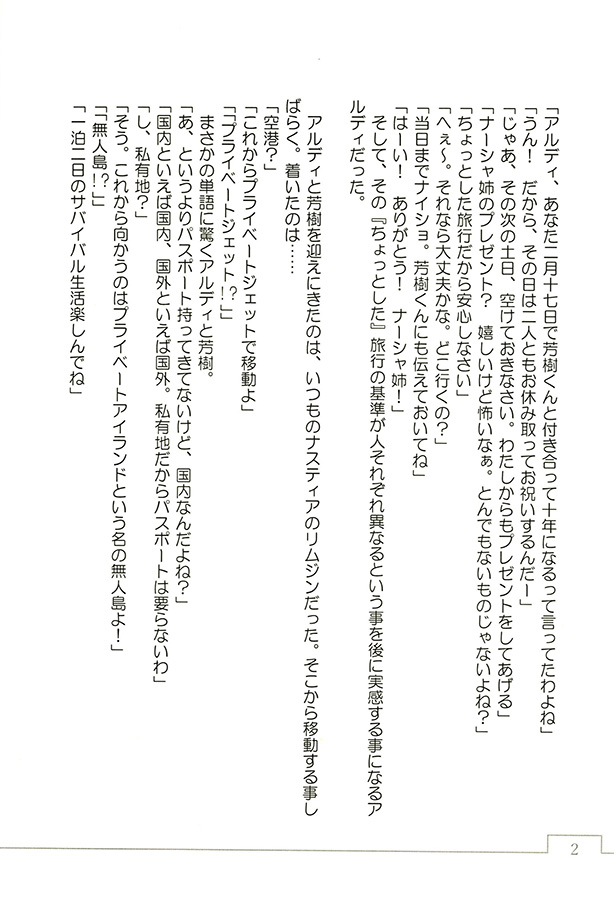 「アルディ、あなた二月十七日で芳樹くんと付き合って十年になるって言ってたわよね」
「うん！　だから、その日は二人ともお休み取ってお祝いするんだー」
「じゃあ、その次の土日、空けておきなさい。わたしからもプレゼントをしてあげる」
「ナーシャ姉のプレゼント？　嬉しいけど怖いなぁ。とんでもないものじゃないよね？」
「ちょっとした旅行だから安心しなさい」
「へぇ～。それなら大丈夫かな。どこ行くの？」
「当日までナイショ。芳樹くんにも伝えておいてね」
「はーい！　ありがとう！　ナーシャ姉！」
　そして、その『ちょっとした』旅行の基準が人それぞれ異なるという事を後に実感する事になるア
ルディだった。
　アルディと芳樹を迎えにきたのは、いつものナスティアのリムジンだった。そこから移動する事し
ばらく。着いたのは……
「空港？」
「これからプライベートジェットで移動よ」
「「プライベートジェット！？」」
　まさかの単語に驚くアルディと芳樹。
「あ、というよりパスポート持ってきてないけど、国内なんだよね？」
「国内といえば国内、国外といえば国外。私有地だからパスポートは要らないわ」
「し、私有地？」
「そう。これから向かうのはプライベートアイランドという名の無人島よ！」
「「無人島！？」」
「一泊二日のサバイバル生活楽しんでね」
2